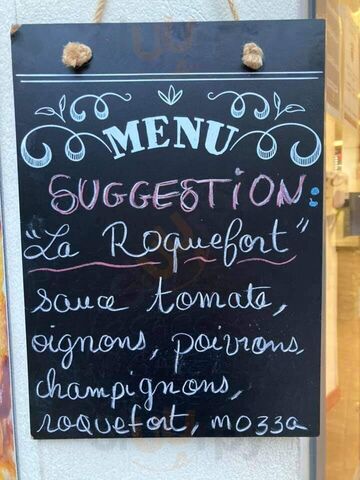 MENU
SUGGESTION:
"La Roquefort"
sauce tomate,
oignons, poivrons,
champignons,
roquefort, mozza